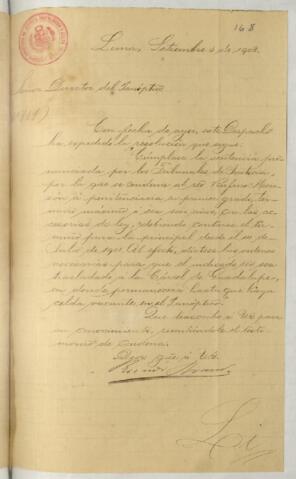 168
Lima, Setiembre 4 de 1902.
Señor Director del Panóptico
Con fecha de ayer, este Despacho
ha expedido la resolución que sigue:
"Cúmplase la sentencia pro-
nunciada por los Tribunales de Justicia,
por la que se condena al reo
á penitenciaría en primer grado, tér-
mino máximo ó sea seis años, con las ac-
cesorias de ley, debiendo contarse el tér-
mino para la principal desde el
Julio de 1901. Al efecto, díctese las órdenes
necesarias para que el indicado reo sea
trasladado á la Cárcel de Guadalupe,
en donde permanecerá hasta que haya
celda vacante en el Panóptico."
Que trascribo á US. para
su conocimiento, remitiéndole el testi-
monio de condena.
Dios gue. á US.